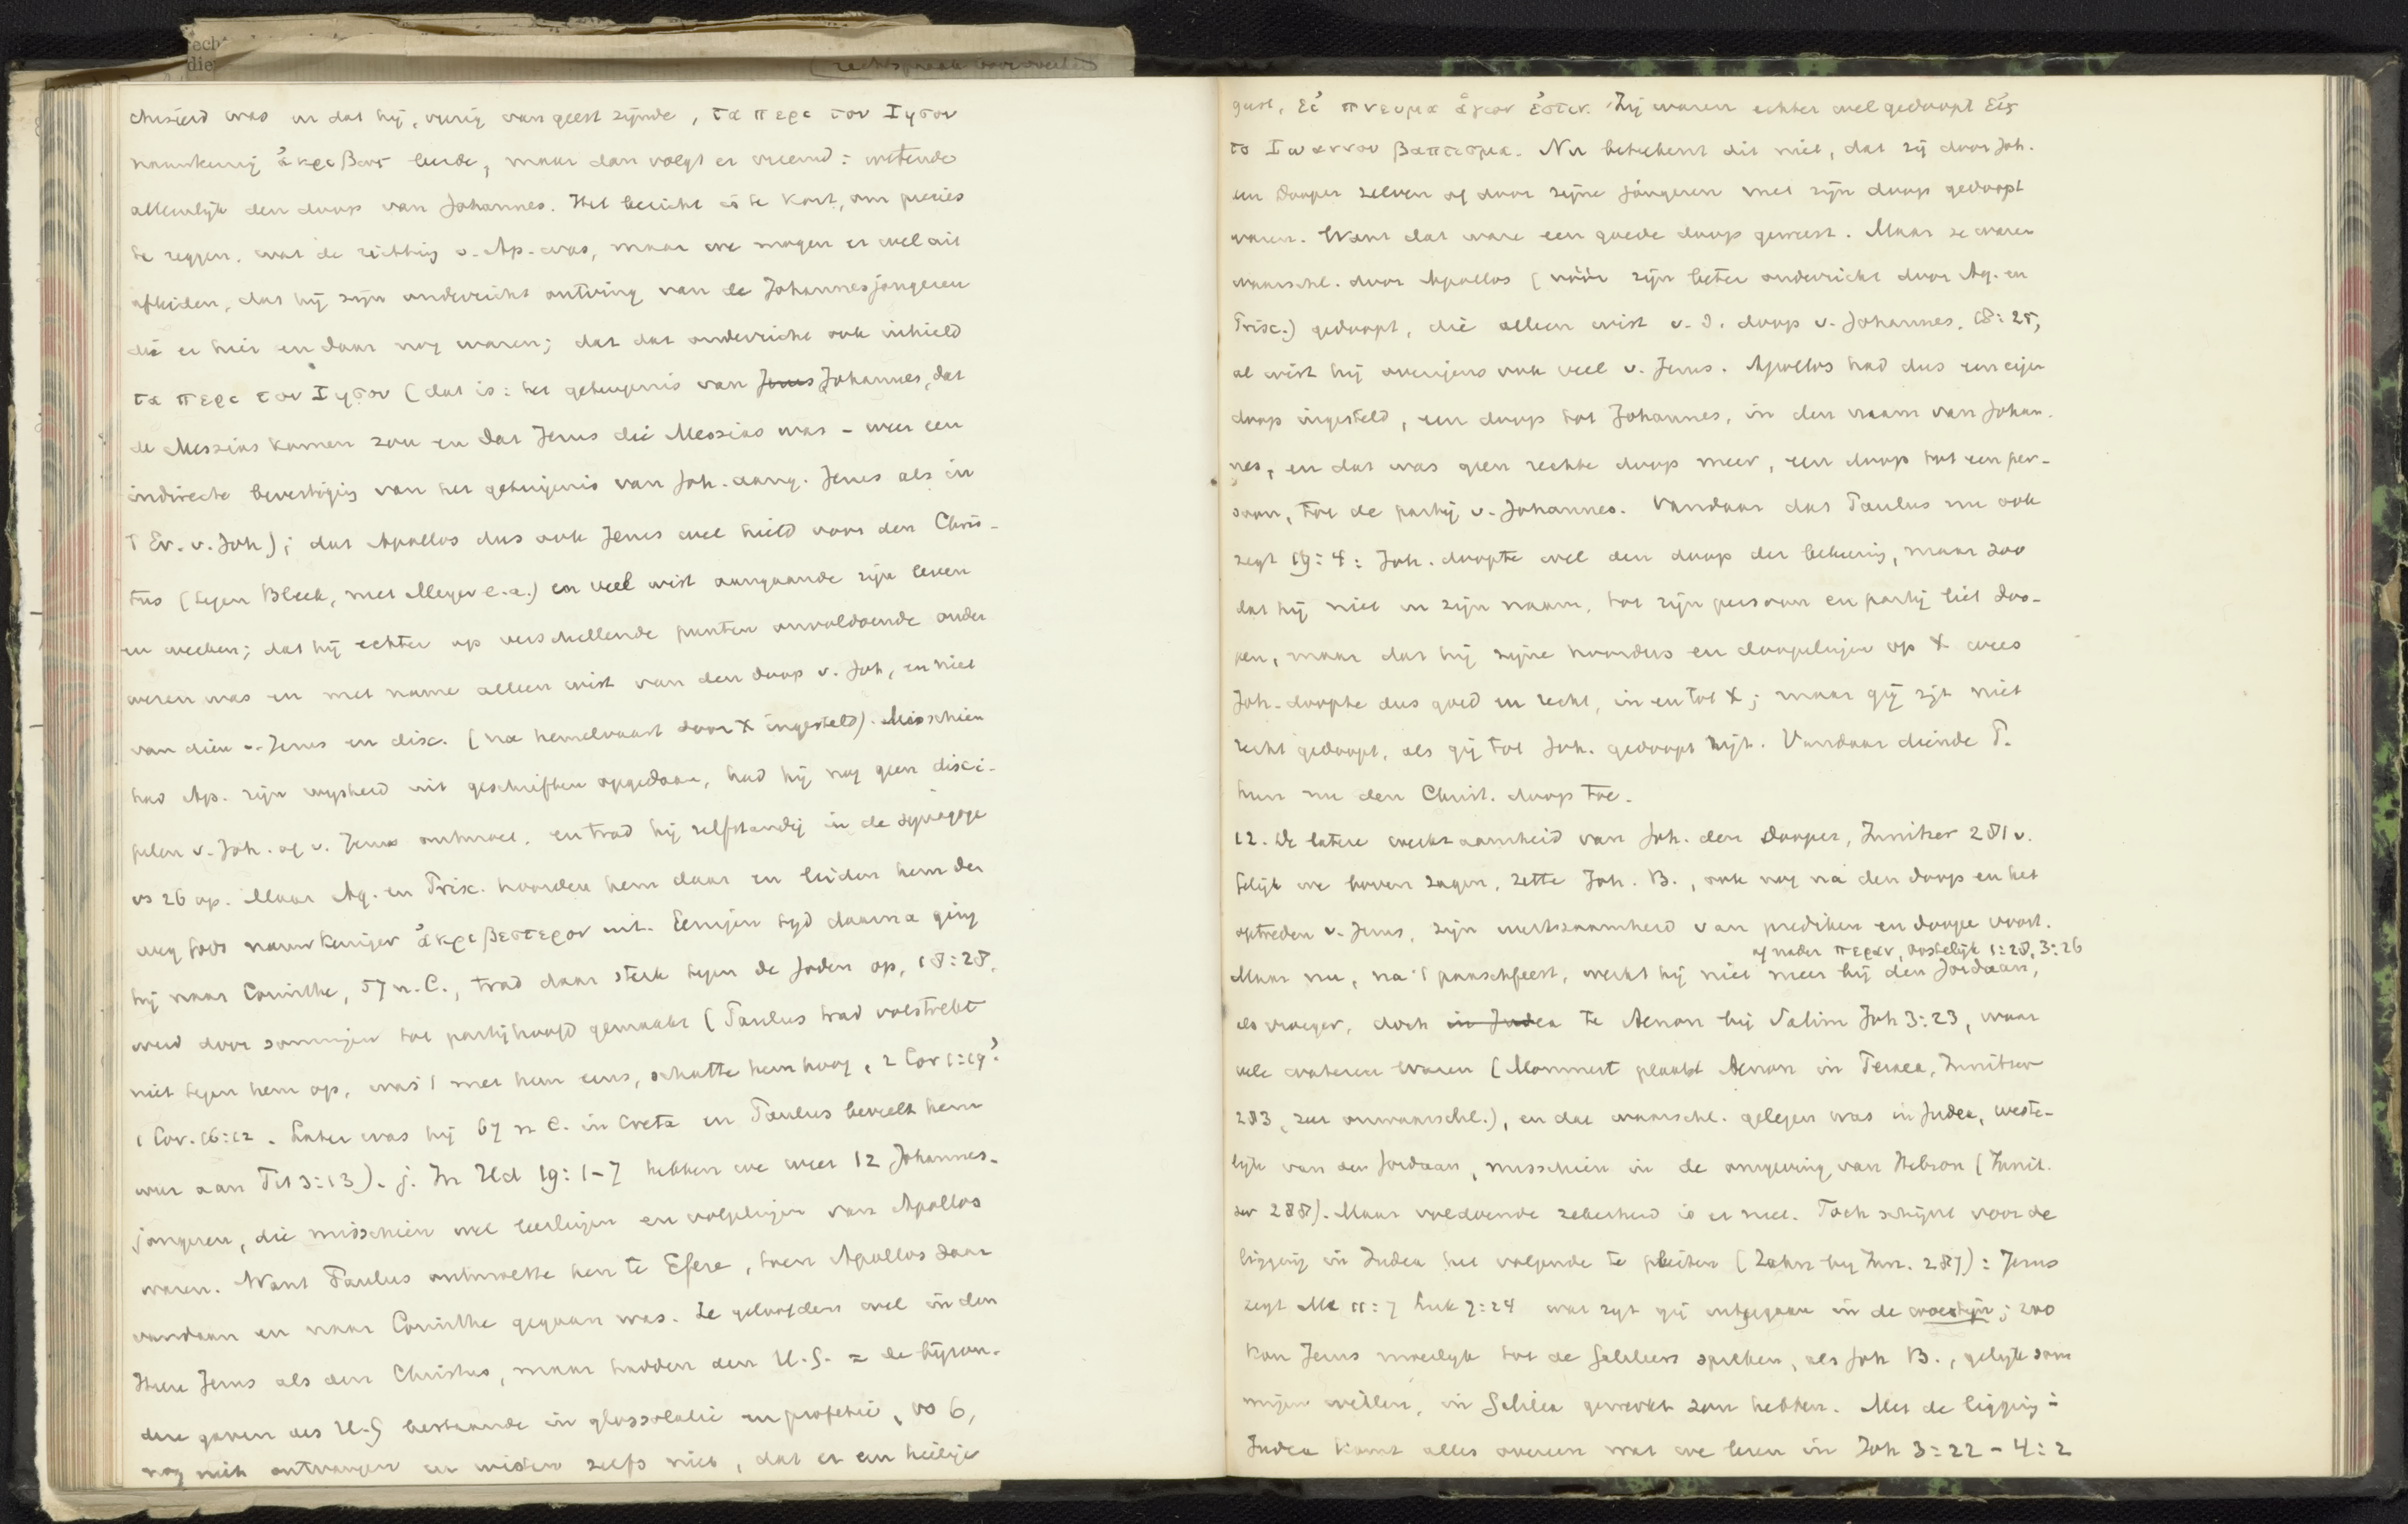 rechtspraak
chiseerd was en dat hij, vurig van geest zijnde, τα περι του Ιησου
naauwkeurig ἀκριβως leerde, maar dan volgt er vreemd: wetende
alleenlijk den doop van Johannes. Het bericht is te kort, om precies
te zeggen, wat de richting v. Ap. was, maar we mogen er wel uit
afleiden, dat hij zijn onderricht ontving van de Johannesjongeren
die er hier en daar nog waren; dat dat onderricht ook inhield
τα περι του Ιησου (dat is: het getuigenis van Jezus Johannes, dat
de Messias komen zou en dat Jezus die Messias was – weer een
indirecte bevestiging van het getuigenis van Joh. aang. Jezus als in
't Ev. v. Joh); dat Apollos dus ook Jezus wel hield voor den Chris-
tus (tegen Bleek, met Meyer e.a.) en veel wist aangaande zijn leven
en werken; dat hij echter op verschillende punten onvoldoende onder
wezen was en met name alleen wist van den doop v. Joh, en niet
van dien v. Jezus en disc. (na hemelvaart door X ingesteld). Misschien
had Ap. zijn wijsheid uit geschriften opgedaan, had hij nog geen disci-
pelen v. Joh. of v. Jezus ontmoet, en trad hij zelfstandig in de synagoge
vs 26 op. Maar Aq. en Prisc. hoorden hem daar en leiden hem den
weg Gods nauwkeuriger ἀκριβεστερον uit. Eenigen tijd daarna ging
hij naar Corinthe, 57 n. C., trad daar sterk tegen de Joden op, 18:28,
werd door sommigen tot partijhoofd gemaakt (Paulus trad volstrekt
niet tegen hem op, was 't met hem eens, schatte hem hoog, 2 Cor 1:19?
1 Cor. 16:12. Later was hij 67 n C. in Creta en Paulus beveelt hem
weer aan Tit 3:13). j. In Hd 19:1-7 hebben we weer 12 Johannes-
jongeren, die misschien wel leerlingen en volgelingen van Apollos
waren. Want Paulus ontmoette hen te Efeze, toen Apollos daar
vandaan en naar Corinthe gegaan was. Ze geloofden wel in den
Heere Jezus als den Christus, maar hadden den H.G. = de bijzon-
dere gaven des H.G bestaande in glossolalie en profetie, vs 6,
nog niet ontvangen en wisten zelfs niet, dat er een heilige
geest, εἰ πνευμα ἁγιον ἐστιν. Zij waren echter wel gedoopt εἰς
το Ιωαννου βαπτισμα. Nu beteekent dit niet, dat zij door Joh.
den Dooper zelven of door zijne jongeren met zijn doop gedoopt
waren. Want dat ware een goede doop geweest. Maar ze waren
waarschl. door Apollos (vóór zijn beter onderricht door Aq. en
Prisc.) gedoopt, die alleen wist v. d. doop v. Johannes, 18:25,
al wist hij overigens ook veel v. Jezus. Apollos had dus een eigen
doop ingesteld, een doop tot Johannes, in den naam van Johan-
nes, en dat was geen rechte doop meer, een doop tot een per-
soon, tot de partij v. Johannes. Vandaar dat Paulus nu ook
zegt 19:4: Joh. doopte wel den doop der bekeering, maar zoo
dat hij niet in zijn naam, tot zijn persoon en partij liet doo-
pen, maar dat hij zijne hoorders en doopelingen op X wees
Joh. doopte dus goed en recht, in en tot X; maar gij zijt niet
recht gedoopt, als gij tot Joh. gedoopt zijt. Vandaar diende P.
hun nu den Christ. doop toe.
12. De latere werkzaamheid van Joh. den Dooper, Innitzer 281 v.
Gelijk we boven zagen, zette Joh. B., ook nog na den doop en het
optreden v. Jezus, zijn werkzaamheid van prediken en doopen voort.
of nader περαν, oostelijk 1:28, 3:26
Maar nu, na 't paaschfeest, werkt hij niet meer bij den Jordaan,
als vroeger, doch in Judea te Aenon bij Salim Joh 3:23, waar
vele wateren waren (Mommert plaatst Aenon in Peraea, Innitzer
283, zeer onwaarschl.), en dat waarschl. gelegen was in Judea, weste-
lijk van den Jordaan, misschien in de omgeving van Hebron (Innit-
zer 288). Maar voldoende zekerheid is er niet. Toch schijnt voor de
ligging in Judea het volgende te pleiten (Zahn bij Inn. 287): Jezus
zegt Mt 11:7 Luk 7:24 wat zijt gij uitgegaan in de woestijn; zoo
kon Jezus moeilijk tot de Galileers spreken, als Joh B., gelijk som
migen willen, in Galilea gewerkt zou hebben. Met de ligging in
Judea komt alles overeen wat we lezen in Joh 3:22 – 4:2